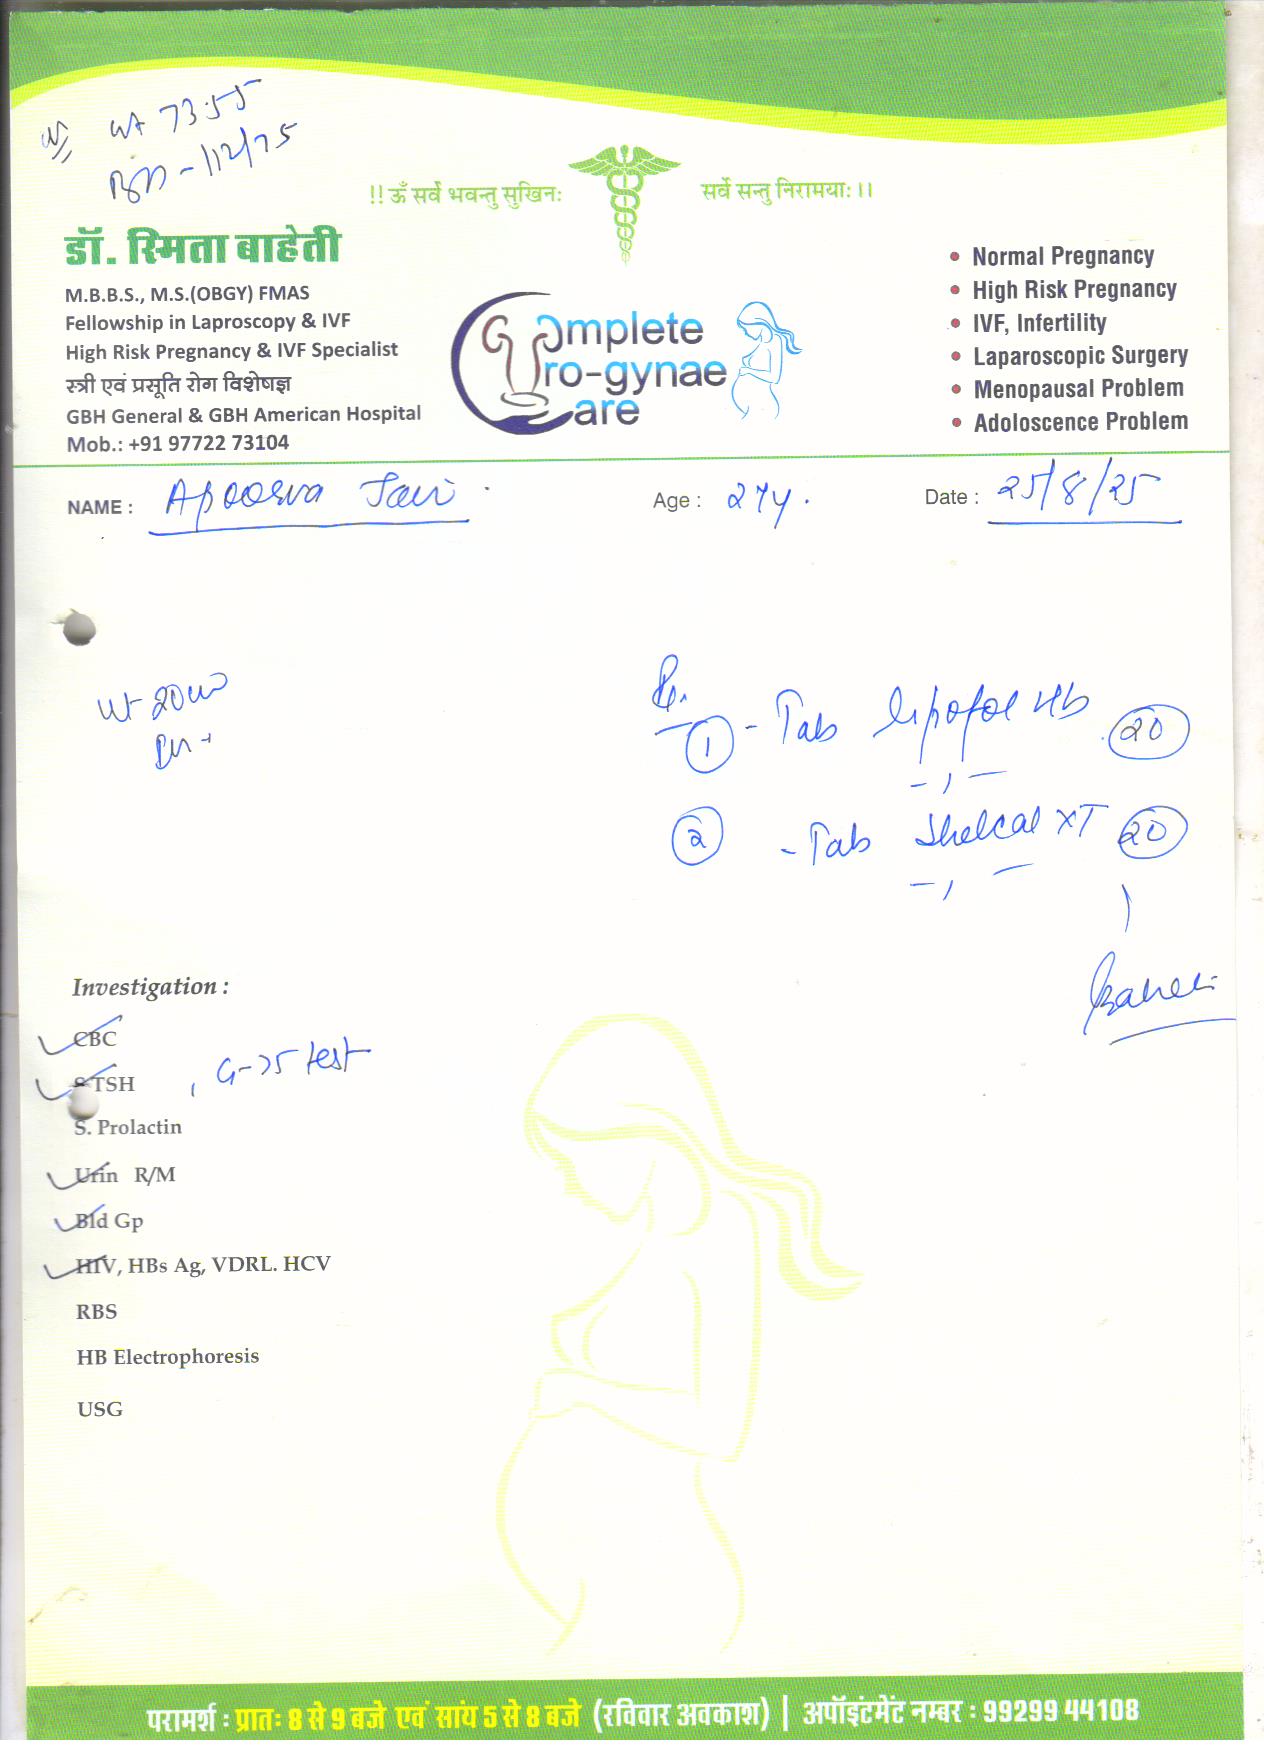 Wt 73.55
BP - 112/75
!! ॐ सर्वे भवन्तु सुखिनः
सर्वे सन्तु निरामयाः ।।
डॉ. स्मिता बाहेती
M.B.B.S., M.S.(OBGY) FMAS
Fellowship in Laproscopy & IVF
High Risk Pregnancy & IVF Specialist
स्त्री एवं प्रसूति रोग विशेषज्ञ
GBH General & GBH American Hospital
Mob.: +91 97722 73104
Complete
Uro-gynae
Care
• Normal Pregnancy
• High Risk Pregnancy
• IVF, Infertility
• Laparoscopic Surgery
• Menopausal Problem
• Adoloscence Problem
NAME : Apoorva
Age : 27y.
Date : 25/8/25
Ut 20
Rx.
1 - Tab Hb 20
2 - Tab Shelcal XT 20
Baheti
Investigation :
CBC
S TSH , test
S. Prolactin
Urin R/M
Bld Gp
HIV, HBs Ag, VDRL. HCV
RBS
HB Electrophoresis
USG
परामर्श : प्रातः 8 से 9 बजे एवं सांय 5 से 8 बजे (रविवार अवकाश) | अपॉइंटमेंट नम्बर : 99299 44108